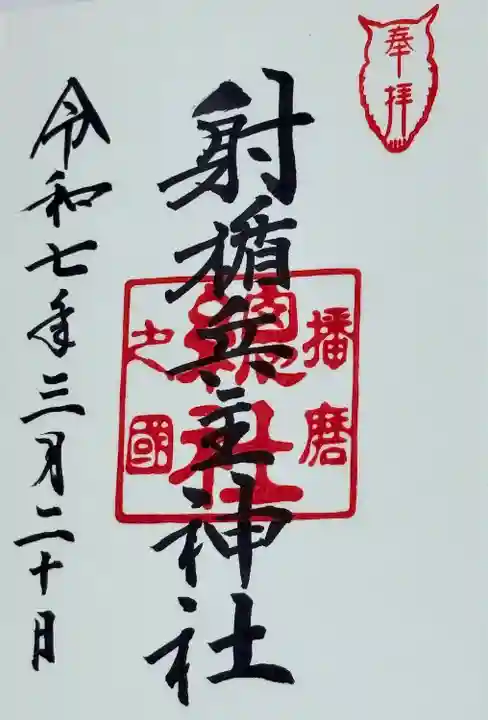 奉拝
射楯兵主神社
播磨
総社
之國
令和七年三月二十日